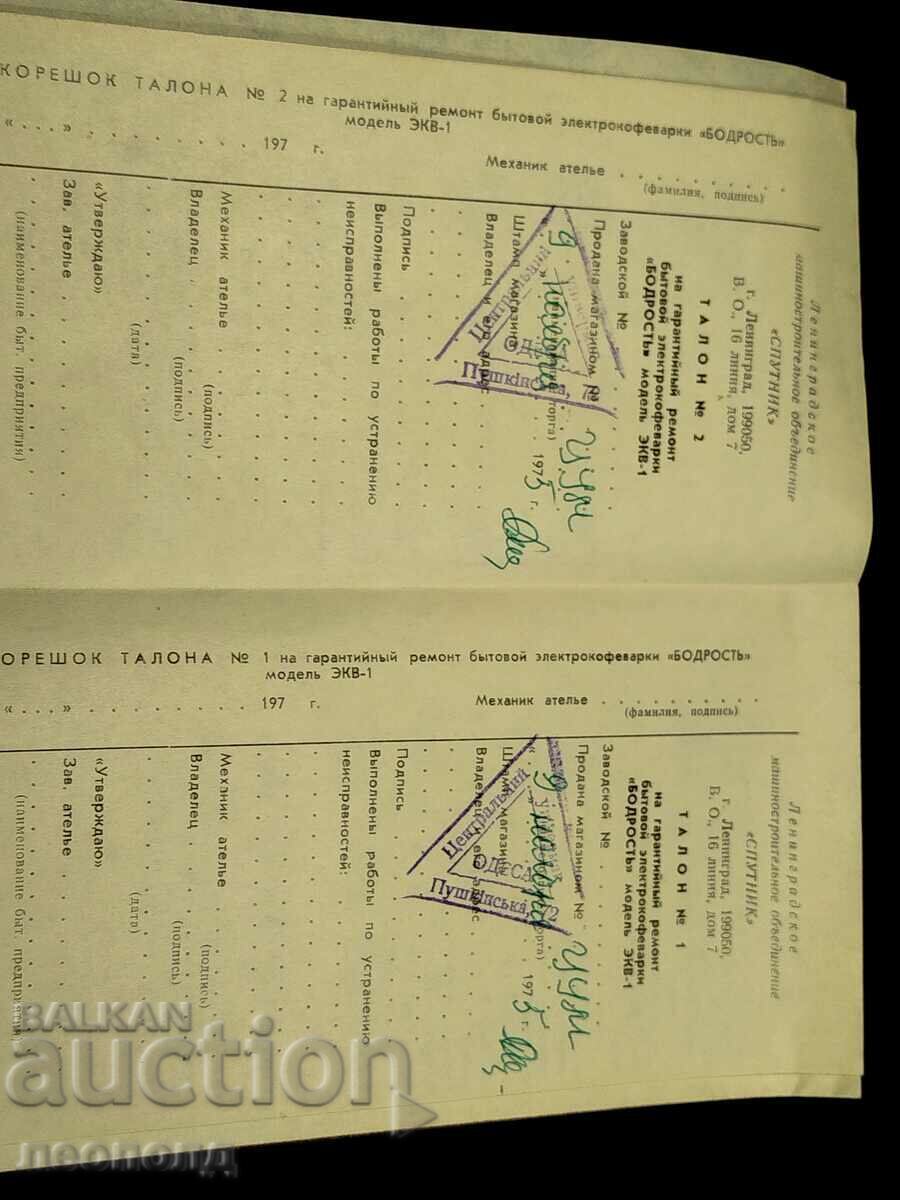 КОРЕШОК ТАЛОНА № 2 на гарантийный ремонт бытовой электрокофеварки «БОДРОСТЬ»
модель ЭКВ-1
« . . . » . . . . . . . . . 197 г.
Механик ателье . . . . . . . . .
(фамилия, подпись)
Ленинградское
машиностроительное объединение
«СПУТНИК»
г. Ленинград, 199050,
В. О., 16 линия, дом 7
ТАЛОН № 2
на гарантийный ремонт
бытовой электрокофеварки
«БОДРОСТЬ» модель ЭКВ-1
Заводской №
Продана магазином №
1975 г.
Штамп магазина
Владелец и его адрес
Центральний
ОДЕСА
Пушкінська, 72
Подпись
Выполнены работы по устранению
неисправностей:
Механик ателье
(подпись)
Владелец
(подпись)
(дата)
«Утверждаю»
Зав. ателье
(наименование быт. предприятия)
ОРЕШОК ТАЛОНА № 1 на гарантийный ремонт бытовой электрокофеварки «БОДРОСТЬ»
модель ЭКВ-1
« . . . » . . . . . . . . . 197 г.
Механик ателье . . . . . . . . .
(фамилия, подпись)
Ленинградское
машиностроительное объединение
«СПУТНИК»
г. Ленинград, 199050,
В. О., 16 линия, дом 7
ТАЛОН № 1
на гарантийный ремонт
бытовой электрокофеварки
«БОДРОСТЬ» модель ЭКВ-1
Заводской №
Продана магазином №
1975 г.
Штамп магазина
Владелец его адрес
Центральний
ОДЕСА
Пушкінська, 72
Подпись
Выполнены работы по устранению
неисправностей:
Механик ателье
(подпись)
Владелец
(подпись)
(дата)
«Утверждаю»
Зав. ателье
(наименование быт. предприятия)
BALKAN
auction
леополд